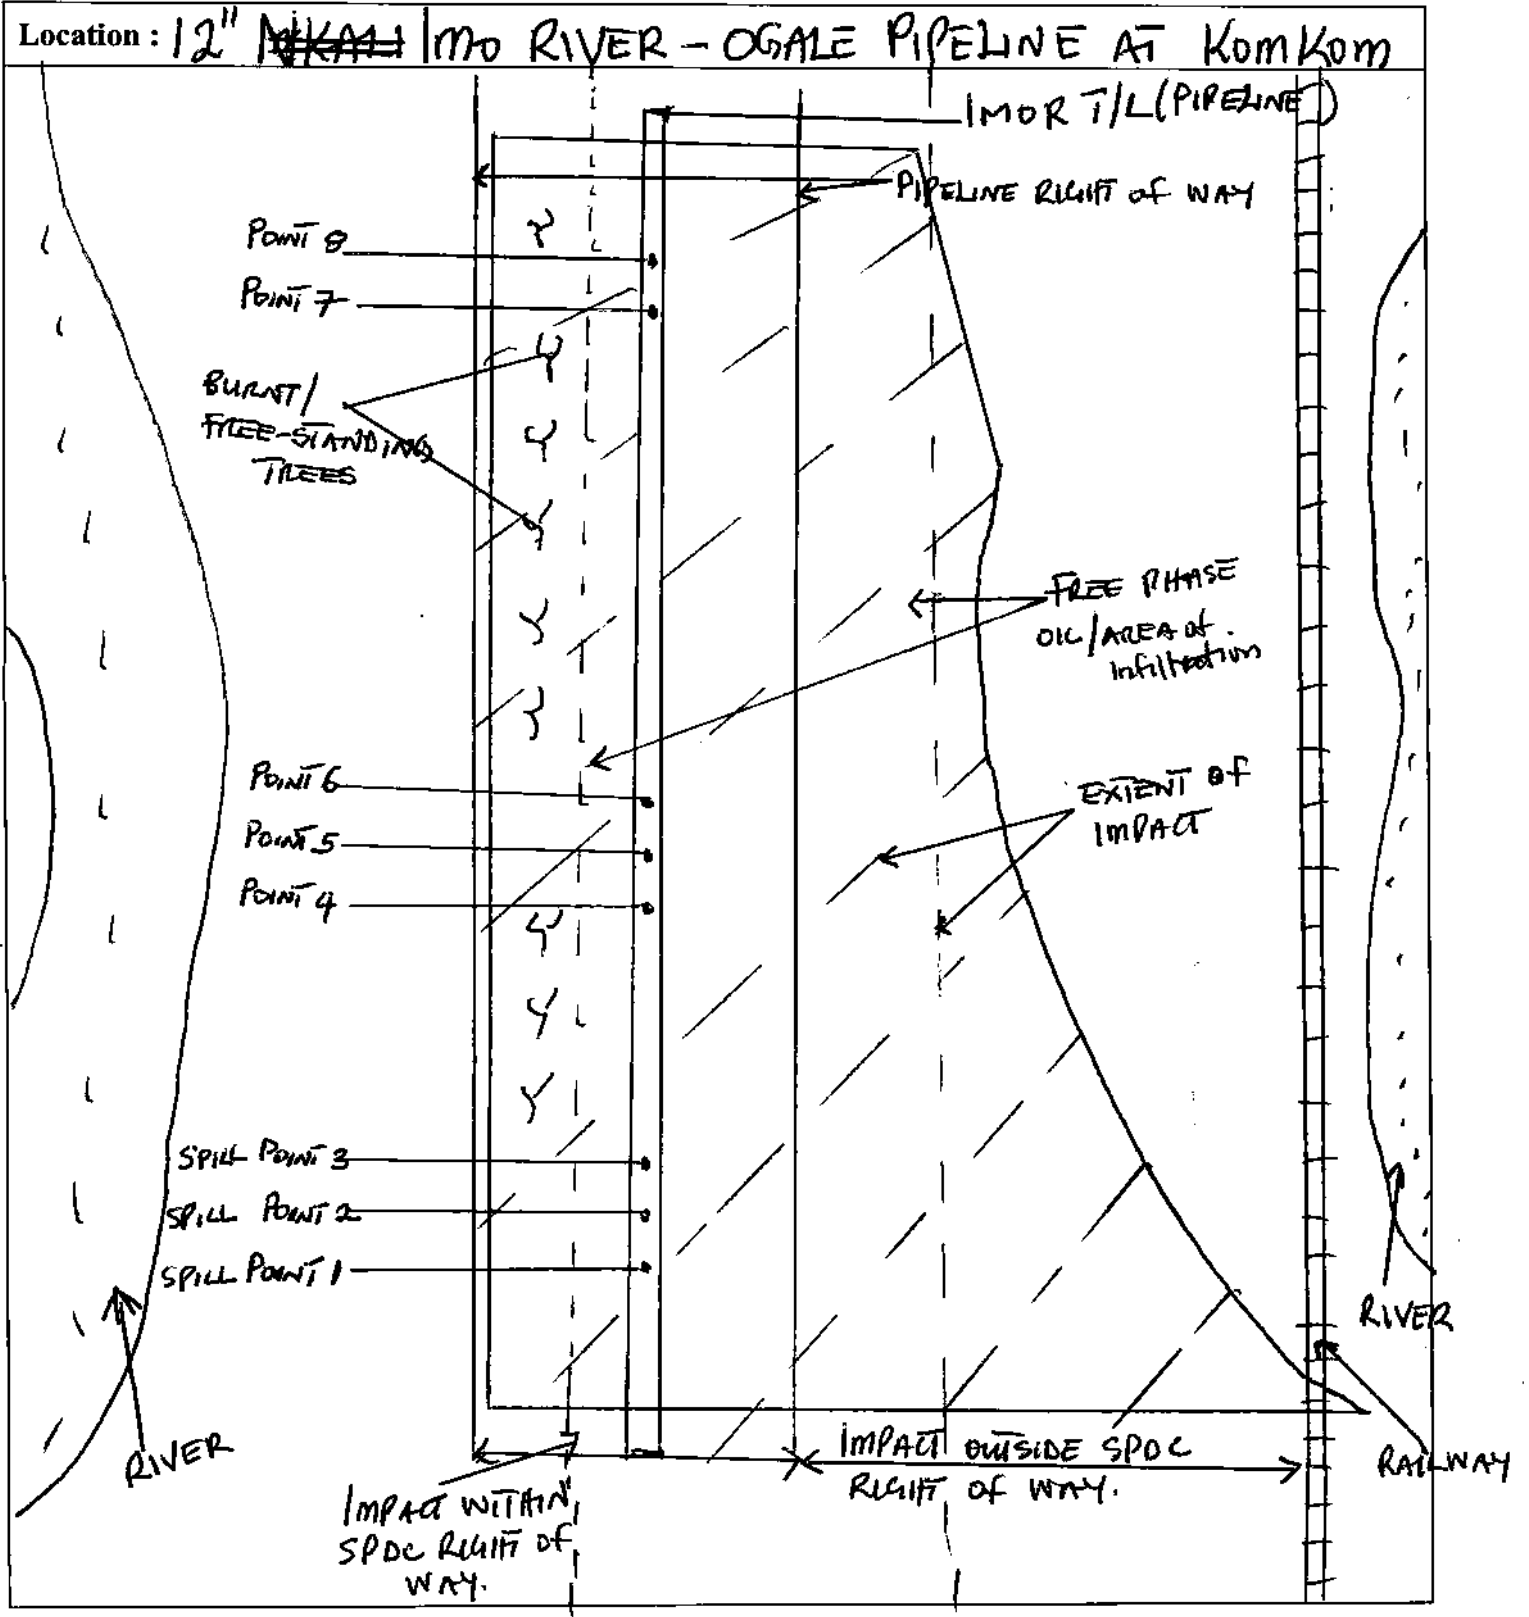 Location : 12" Imo RIVER - OGALE PIPELINE AT KomKom
IMOR T/L (PIPELINE)
PIPELINE RIGHT of WAY
POINT 8
POINT 7
BURNT/
FREE-STANDING
TREES
FREE PHASE
OIL/AREA of
infiltration
POINT 6
EXTENT of
IMPACT
POINT 5
POINT 4
SPILL POINT 3
SPILL POINT 2
SPILL POINT 1
RIVER
RIVER
IMPACT OUTSIDE SPDC
RIGHT of WAY.
RAILWAY
IMPACT WITHIN
SPDC RIGHT of
WAY.